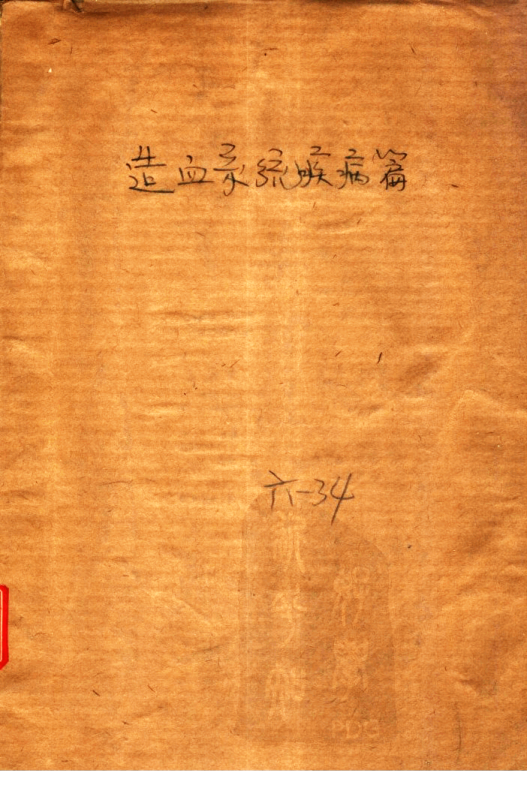 造血系统疾病篇
六-34
PDG